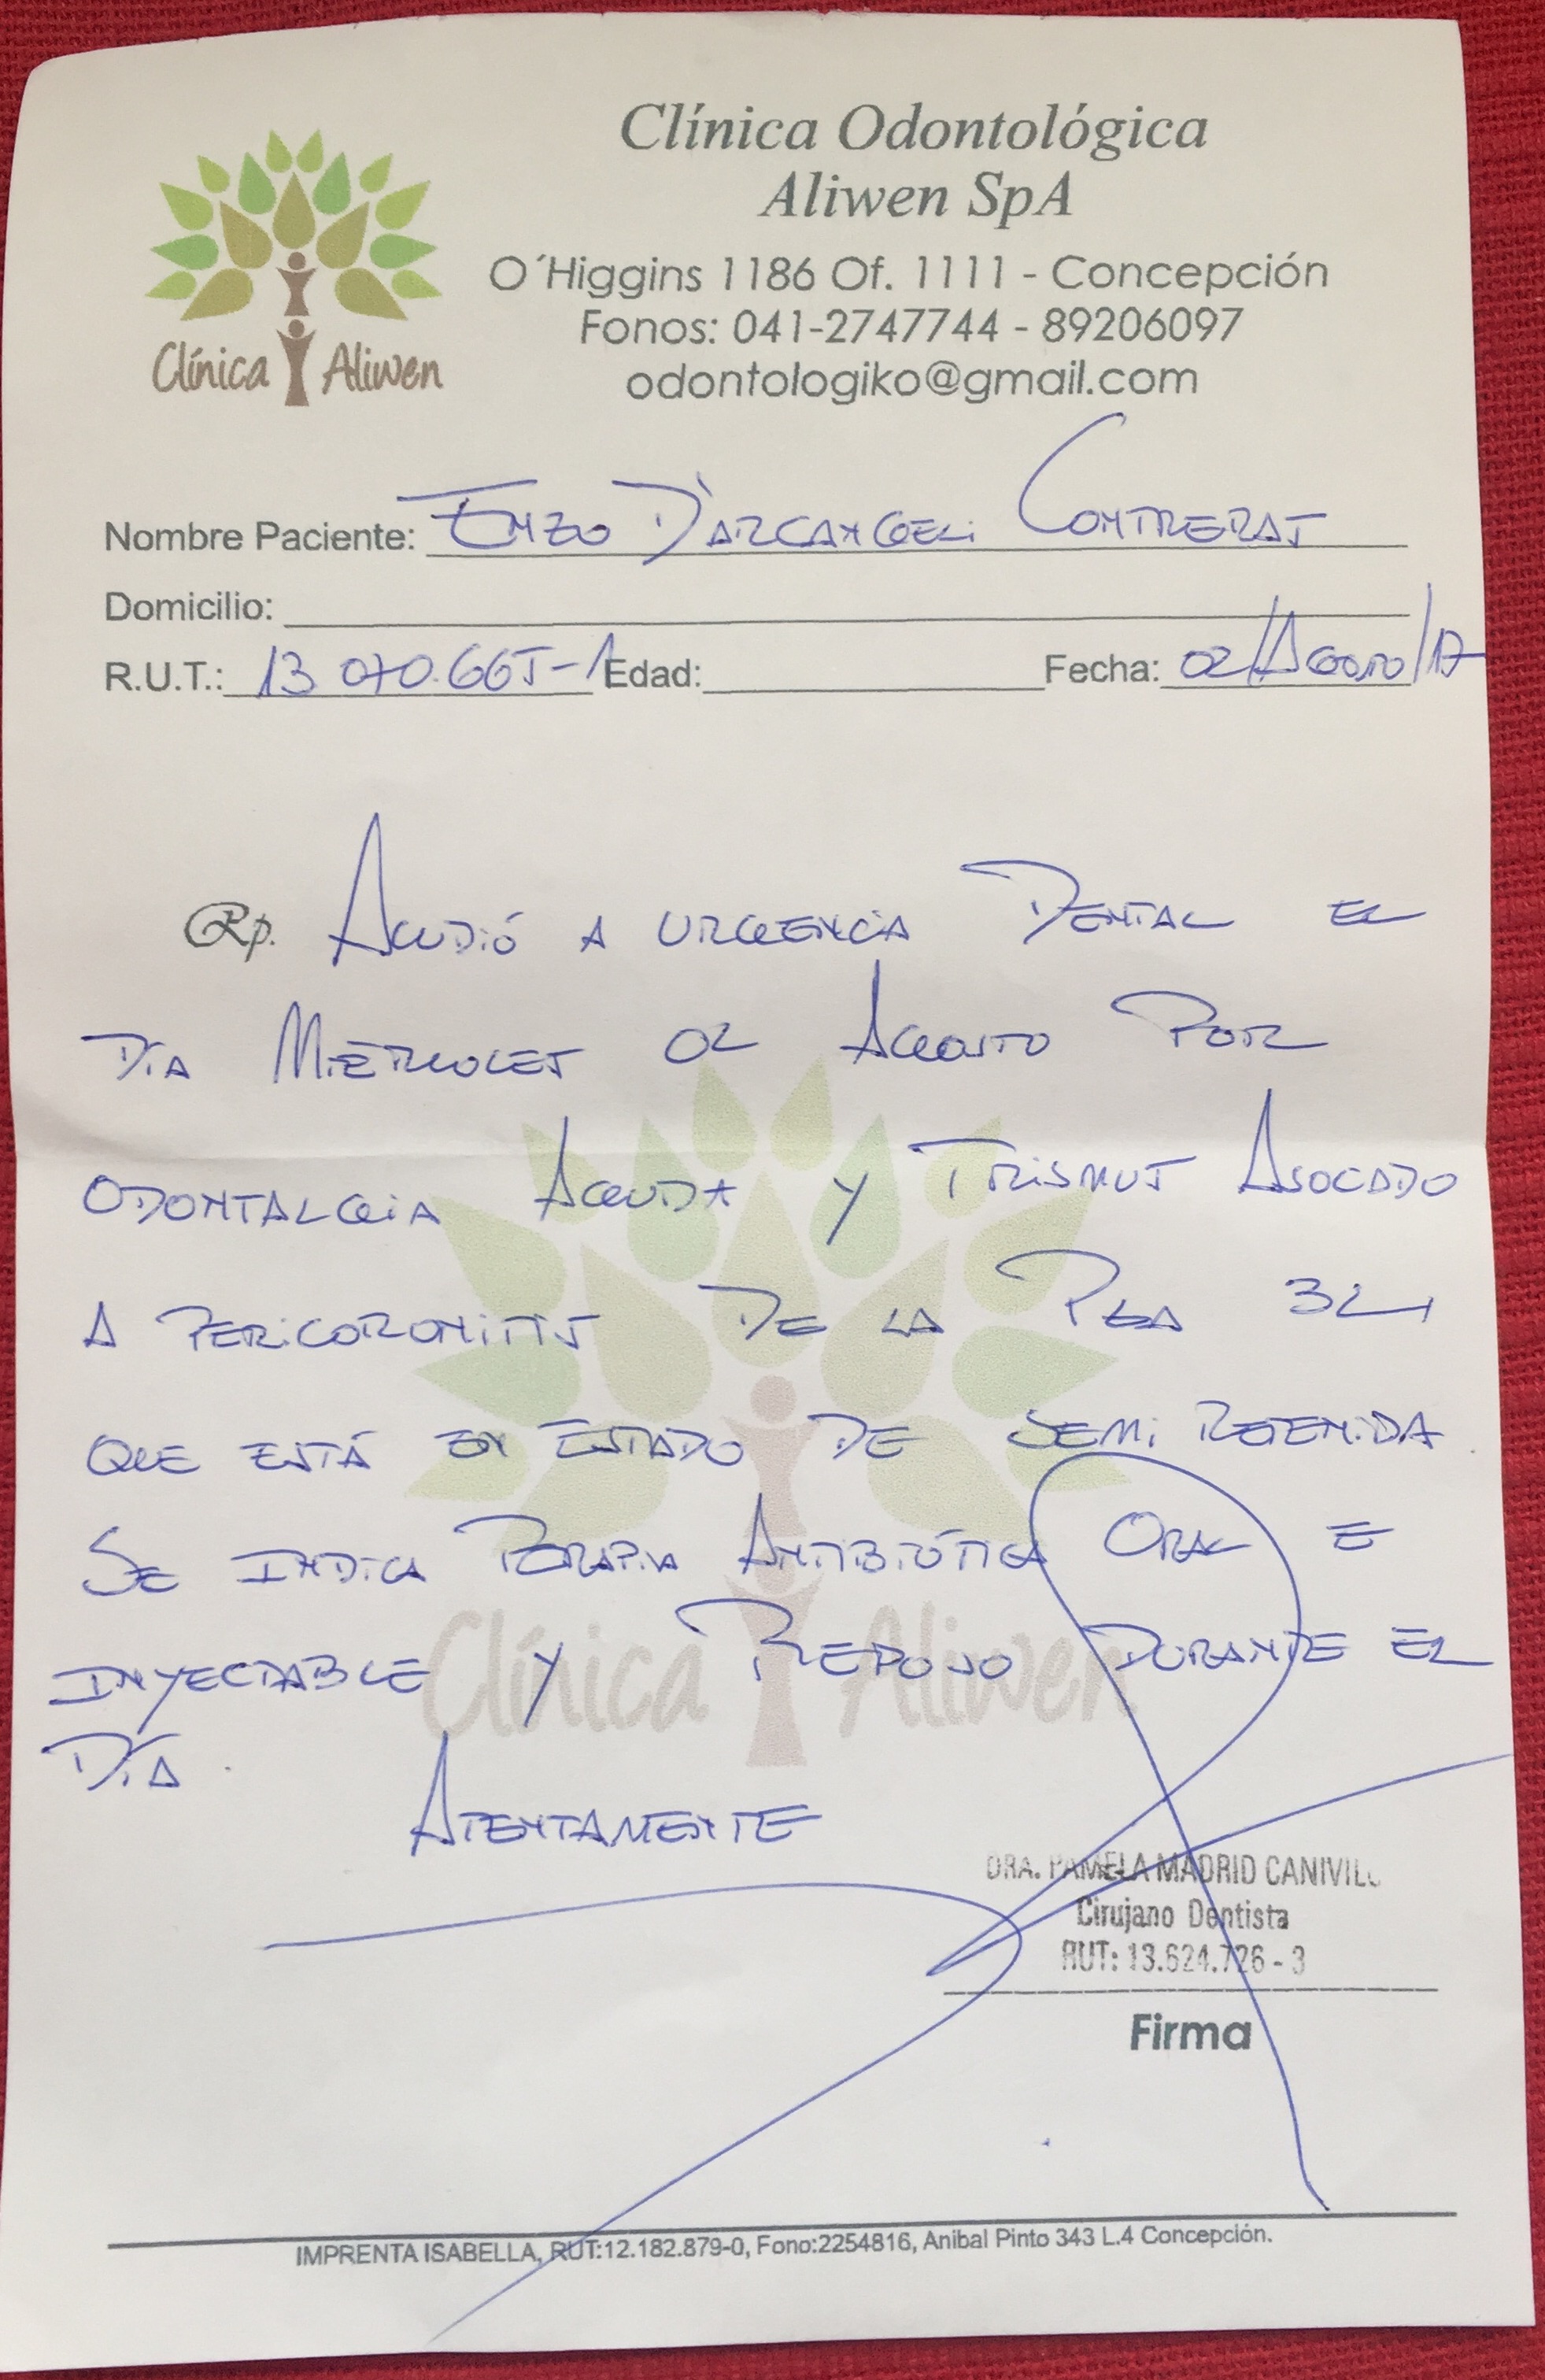 Clínica Odontológica
Aliwen SpA
O´Higgins 1186 Of. 1111 - Concepción
Fonos: 041-2747744 - 89206097
odontologiko@gmail.com
Clínica Aliwen
Nombre Paciente: Enzo D'Arcangeli Contreras
Domicilio:
R.U.T.: 13 070.665-1 Edad: Fecha: 02/Agosto/17
Rp. Acudió a urgencia Dental el
día Miércoles 02 Agosto por
odontalgia Aguda y Trismus Asociado
a pericoronitis de la Pza 3.
que está en estado de semi retenida.
Se indica Terapia Antibiótica Oral e
inyectable y Reposo durante el
día.
Atentamente
Clínica Aliwen
DRA. PAMELA MADRID
Cirujano Dentista
RUT: 13.624.726 - 3
Firma
IMPRENTA ISABELLA, RUT:12.182.879-0, Fono:2254816, Anibal Pinto 343 L.4 Concepción.